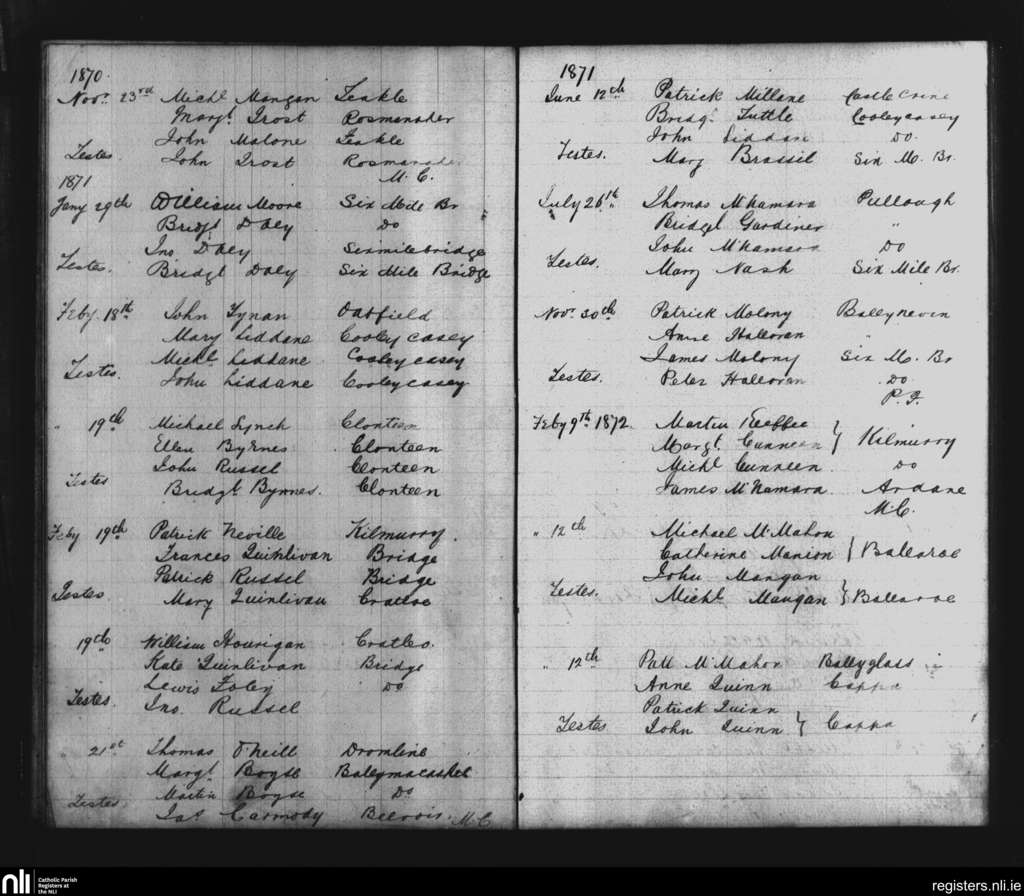 1870.
Novr. 23rd Michl Mangan Feakle
Margt. Frost Rosmanaher
John Malone Feakle
Testes. John Frost Rosmanaher
M. C.
1871
Jany 29th William Moore Six Mile Br
Bridgt Daly Do
Jno. Daly Sixmilebridge
Testes. Bridgt Daly Six Mile Bridge
Feby. 18th John Tynan Oatfield
Mary Liddane Cooleycasey
Michl. Liddane Cooleycasey
Testes. John Liddane Cooleycasey
" 19th Michael Lynch Clonteen
Ellen Byrnes Clonteen
John Russel Clonteen
Testes Bridgt Byrnes. Clonteen
Feby 19th Patrick Neville Kilmurry.
Frances Quinlivan Bridge
Patrick Russel Bridge
Testes Mary Quinlivan Cratloe
19th William Hourigan Cratloe.
Kate Quinlivan Bridge
Lewis Foley Do
Testes. Jno. Russel
" 21st Thomas O'Neill Dromline
Margt. Boyse Ballymacashel
Martin Boyse Do
Testes. Jas Carmody M. C.
1871
June 12th Patrick Millane Castle Crine
Bridgt. Tuttle Cooleycasey
John Liddan Do.
Testes. Mary Brassil Six M. Br.
July 26th Thomas McNamara Pullough
Bridget Gardiner "
John McNamara Do
Testes. Mary Nash Six Mile Br.
Novr. 30th Patrick Molony Ballynevin
Anne Halloran "
James Molony Six M. Br
Testes. Peter Halloran Do
P. G.
Feby 9th 1872. Martin Keeffe
Margt. Cunneen } Kilmurry
Michl Cunneen. Do
James McNamara. Ardane
M. C.
" 12th Michael McMahon
Catherine Manion } Ballaroe
John Mangan
Testes. Michl Mangan } Ballaroe
" 12th Patt McMahon Ballyglass
Anne Quinn Cappa
Patrick Quinn
Testes John Quinn } Cappa
nli Catholic Parish
Registers at
the NLI
registers.nli.ie